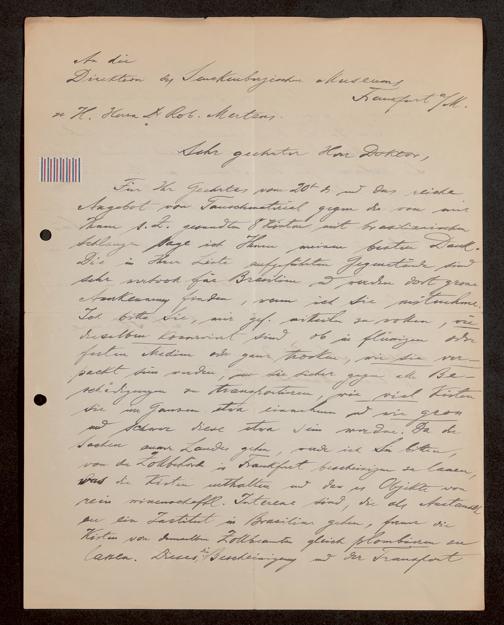 An die
Direktion des Senckenbergischen Museums
Frankfurt a/M.
z. H. Herrn Dr Rob. Mertens.
Sehr geehrter Herr Doktor,
Für Ihr Geehrtes vom 20t ds und das reiche
Angebot von Tauschmaterial gegen die von mir
Ihnen s. Z. gesandten 8 Kisten mit brasilianischen
Schlangen sage ich Ihnen meinen besten Dank.
Die in Ihrer Liste aufgeführten Gegenstände sind
sehr wertvoll für Brasilien u werden dort grosse
Anerkennung finden, wenn ich sie mitnehme.
Ich bitte Sie, mir gef. mitteilen zu wollen, wie
dieselben konserviert sind, ob in flüssigen oder
festen Medien oder ganz trocken, wie sie ver-
packt sein werden, um sie sicher gegen alle Be-
schädigungen zu transportieren, wie viel Kisten
sie im Ganzen etwa einnehmen und wie gross
und schwer diese etwa sein werden. Da die
Sachen ausser Landes gehen, würde ich Sie bitten,
von der Zollbehörde in Frankfurt bescheinigen zu lassen,
was die Kisten enthalten und dass es Objekte von
rein wissenschaftl. Interesse sind, die als Austausch
an ein Institut in Brasilien gehen, ferner die
Kisten von demselben Zollbeamten gleich plombieren zu
lassen. Diese Bescheinigung und der Transport